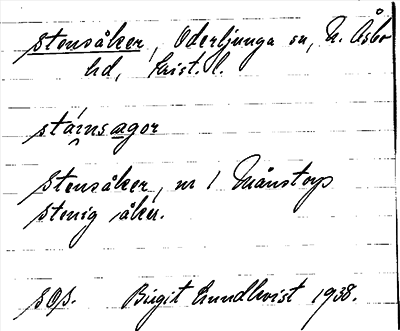 stensåker, Oderljunga sn, N. Åsbo
hd, Krist. l.
stáinsagor
Stensåker, nr 1 Månstorp
stenig åker.
sOs. Birgit Lundkvist 1938.